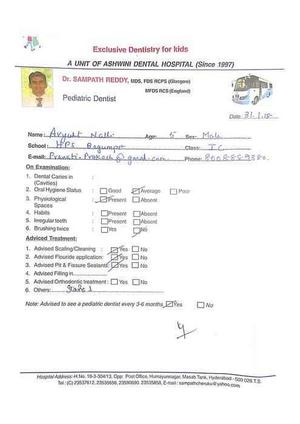 Exclusive Dentistry for kids
A UNIT OF ASHWINI DENTAL HOSPITAL (Since 1997)
Dr. SAMPATH REDDY, MDS, FDS RCPS (Glasgow)
MFDS RCS (England)
Pediatric Dentist
Date: 31.1.15
Name: Age: 5 Sex: Male
School: HPS Begumpet Class: I C
E-mail: Phone:
On Examination:
1. Dental Caries in :
(Cavities)
2. Oral Hygiene Status : Good Average Poor
3. Physiological : Present Absent
Spaces
4. Habits : Present Absent
5. Irregular teeth : Present Absent
6. Brushing twice : Yes No
Adviced Treatment:
1. Advised Scaling/Cleaning : Yes No
2. Advised Flouride application: Yes No
3. Advised Pit & Fissure Sealants: Yes No
4. Advised Filling in
5. Advised Orthodontic treatment : Yes No
6. Others: Stains
Note: Advised to see a pediatric dentist every 3-6 months Yes No
Hospital Address: H.No. 10-3-304/13, Opp: Post Office, Humayunnagar, Masab Tank, Hyderabad - 500 028 T.S.
Tel.: (C) 23537612, 23535658, 23590690, 23535858, E-mail :